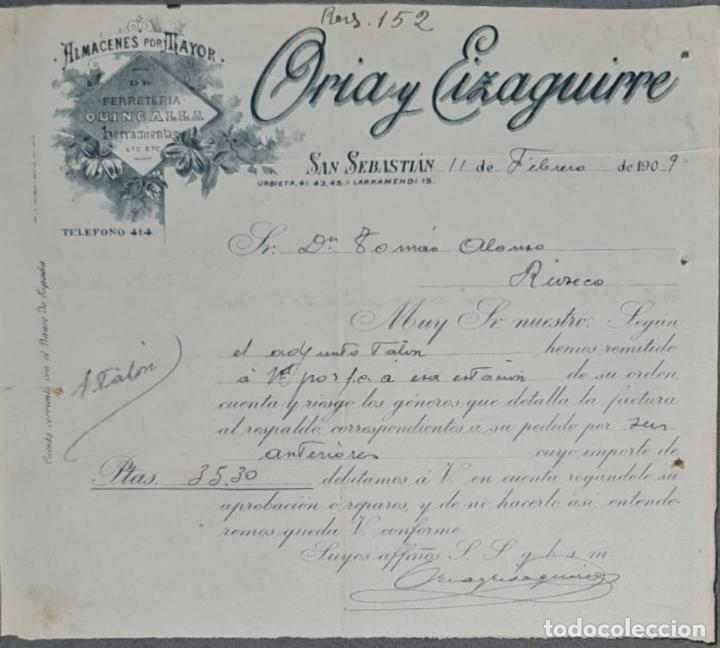 Rers. 152
ALMACENES POR MAYOR
DE
FERRETERIA
QUINCALLA
herramientas
ETC. ETC.
Oria y Eizaguirre
SAN SEBASTIÁN 11 de Febrero de 1909
URBIETA, 41, 43, 45, LARRAMENDI, 15.
TELÉFONO 414.
Sr. Dn Tomás Alonso
Rioseco
Muy Sr. nuestro: Según
el adjunto talón hemos remitido
á Vd por f.c. á esa estación de su orden,
cuenta y riesgo los géneros que detalla la factura
al respaldo, correspondientes á su pedido por sus
anteriores cuyo importe de
Ptas. 35,30 debitamos á V. en cuenta rogándole su
aprobación ó reparos, y de no hacerlo así, entende-
remos queda V. conforme.
Suyos affmos S. S. q. b. s. m.
Oria y Eizaguirre
1 talón
Cuenta corriente con el Banco de España
todocoleccion.net